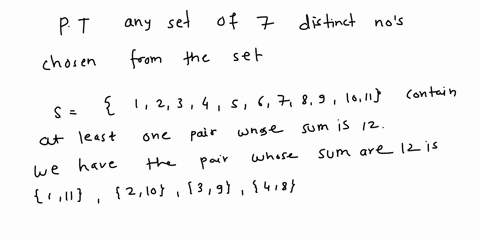 P.T any set of 7 distinct no's
chosen from the set
S = { 1, 2, 3, 4, 5, 6, 7, 8, 9, 10, 11} contain
at least one pair whose sum is 12.
we have the pair whose sum are 12 is
{1, 11} , {2, 10} , {3, 9} , {4, 8}